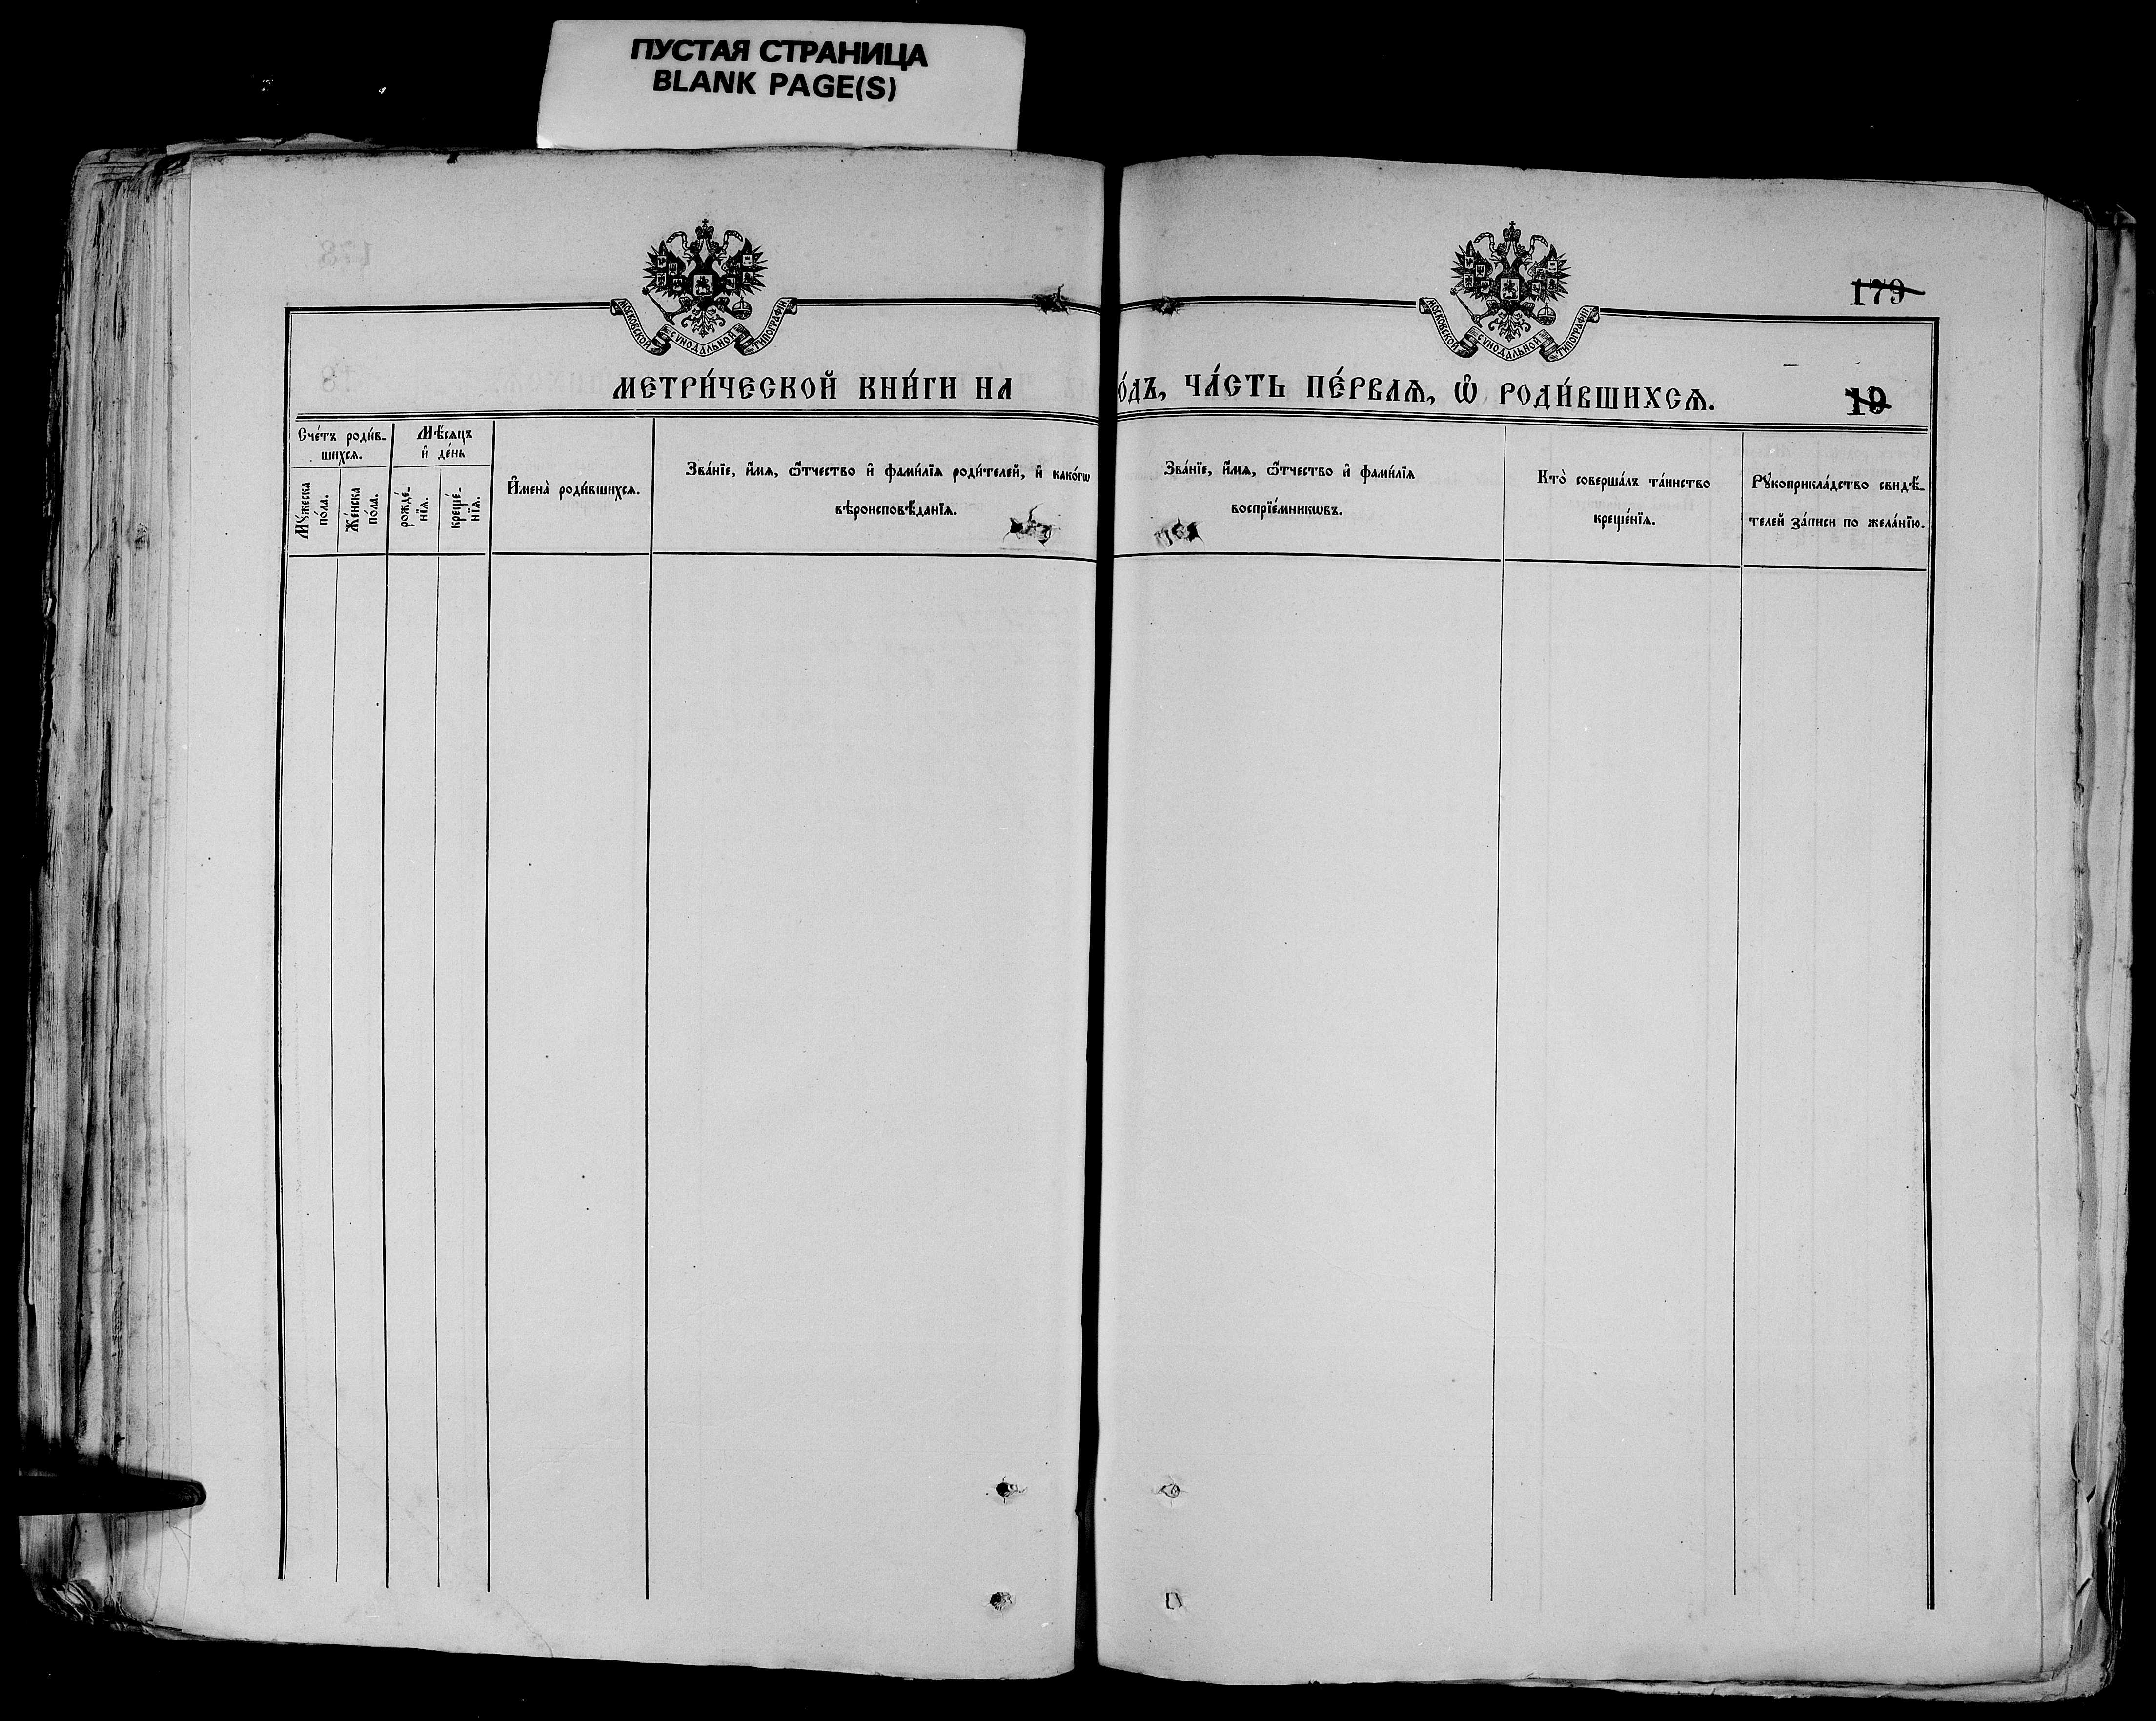 ПУСТАЯ СТРАНИЦА
BLANK PAGE(S)
179
МОСКОВСКОЙ СѴНОДАЛЬНОЙ ТИПОГРАФІИ
МОСКОВСКОЙ СѴНОДАЛЬНОЙ ТИПОГРАФІИ
МЕТРИ́ЧЕСКОЙ КНИ́ГИ НА
О́ДЪ, ЧА́СТЬ ПЕ́РВАѦ, Ѿ РОДИ́ВШИХСѦ.
19
Сче́тъ роди́в-
шихсѧ.
Мꙋ́жеска
по́ла.
Же́нска
по́ла.
Мѣ́сѧцъ
и҆ де́нь
рожде́-
нїѧ.
креще́-
нїѧ.
И҆мена̀ роди́вшихсѧ.
Зва́нїе, и҆́мѧ, ѻ҆́тчество и҆ фами́лїѧ роди́телей, и҆ како́гѡ
вѣроисповѣ́данїѧ.
Зва́нїе, и҆́мѧ, ѻ҆́тчество и҆ фами́лїѧ
воспрїе́мникѡвъ.
Кто̀ соверша́лъ та́инство
креще́нїѧ.
Рꙋкоприкла́дство свидѣ́-
телей за́писи по жела́нїю.